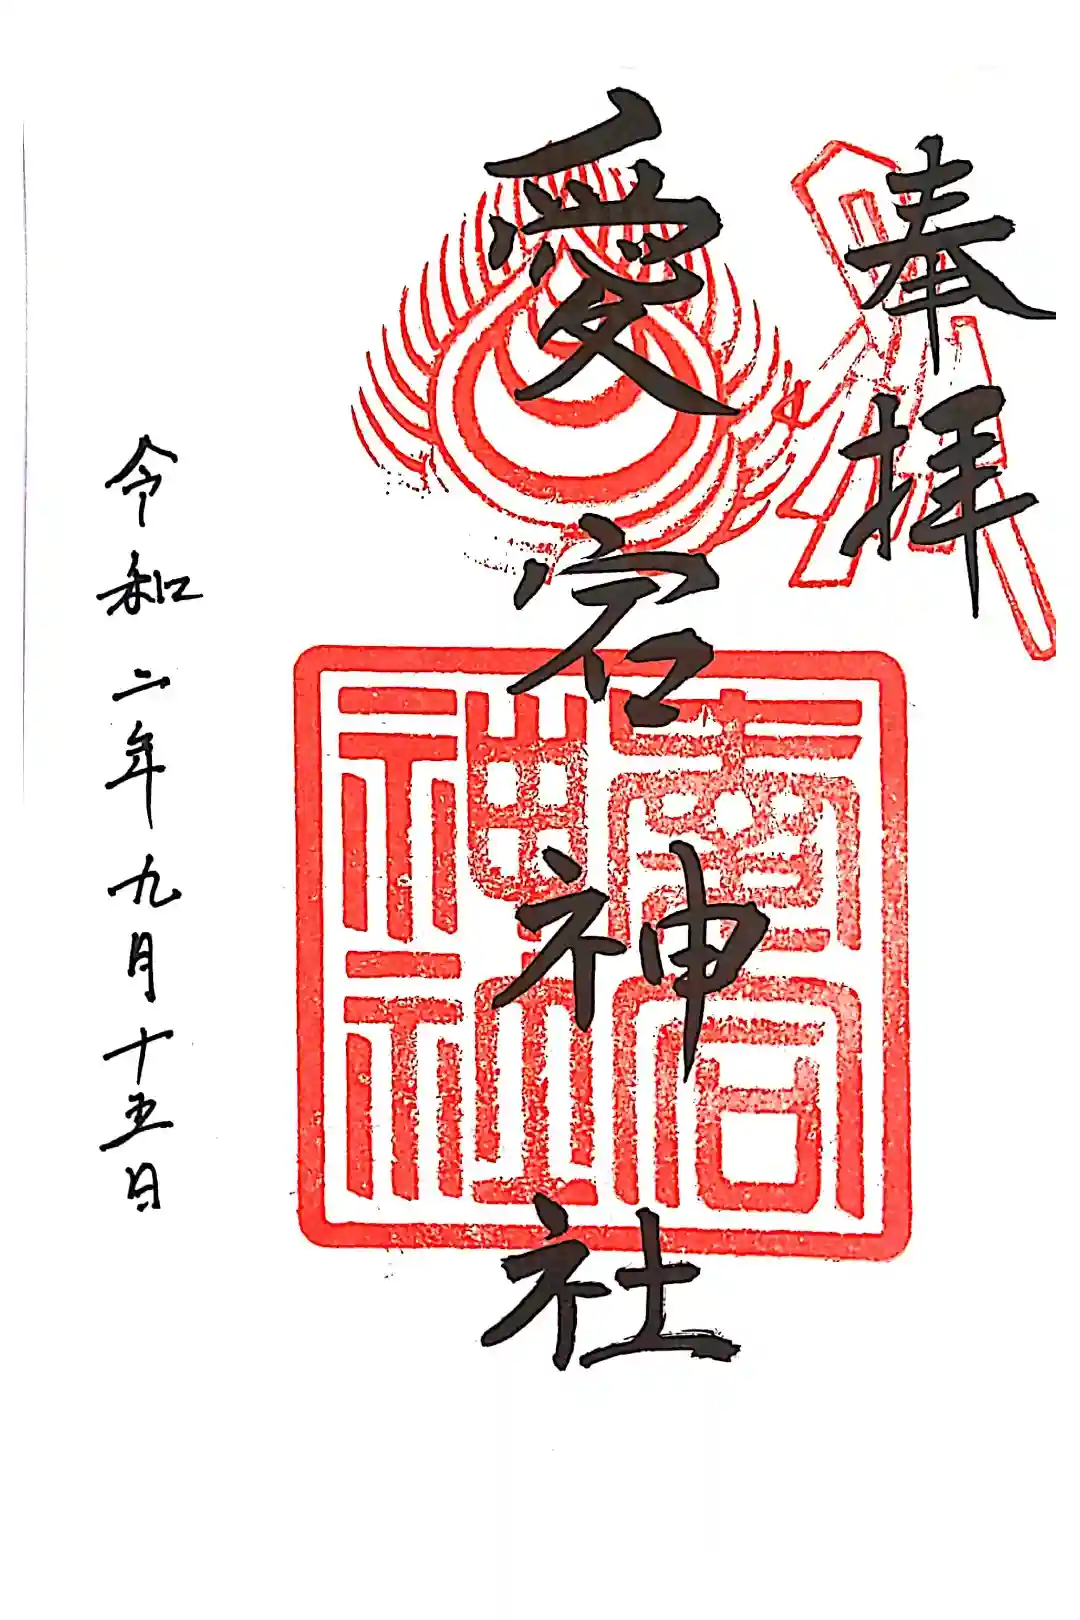 奉拝
愛宕神社
愛宕神社
令和二年九月十五日